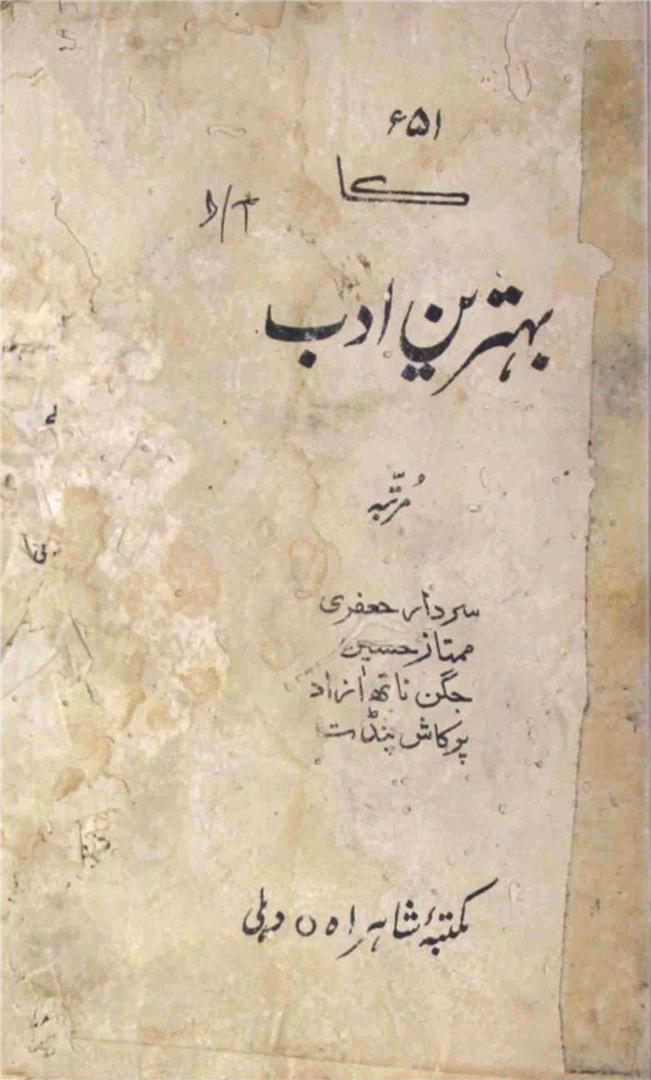 ۶۵۱
کا
بہترین ادب
مُرتّبہ
سردار جعفری
ممتاز حسین
جگن ناتھ آزاد
پرکاش پنڈت
مکتبۂ شاہراہ ٥ دہلی